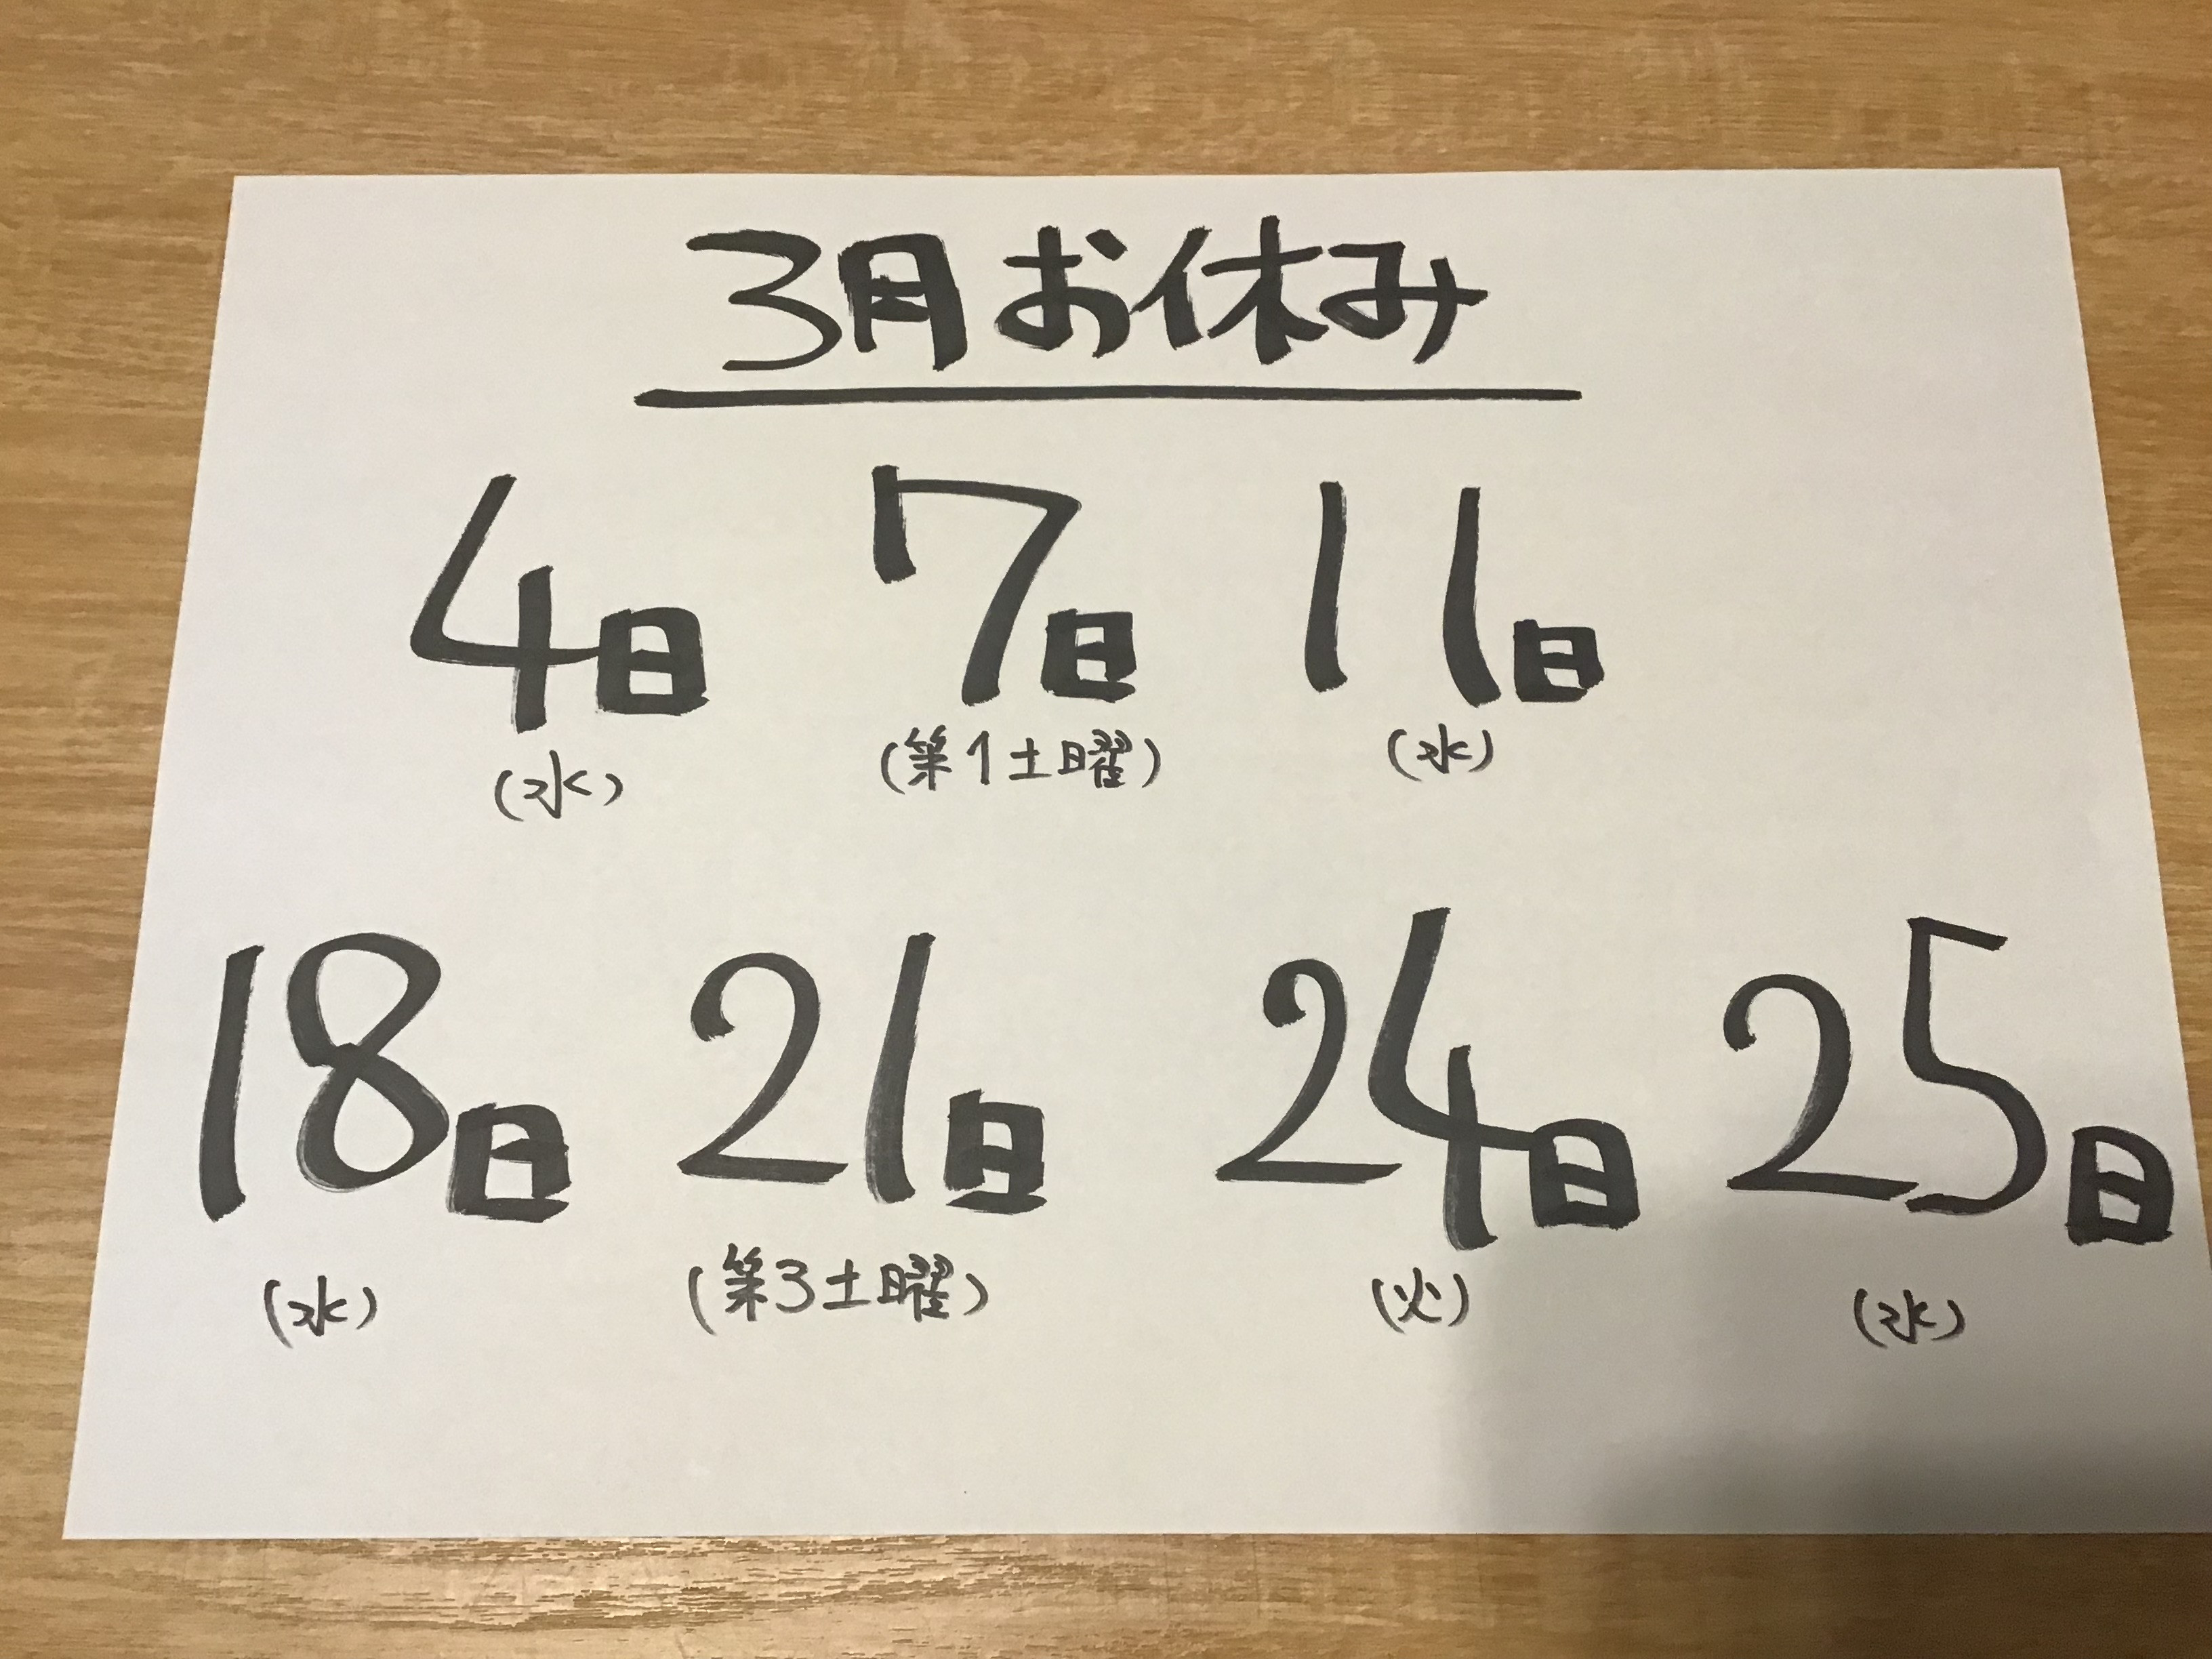 3月お休み
4日 7日 11日
(水) (第1土曜) (水)
18日 21日 24日 25日
(水) (第3土曜) (火) (水)